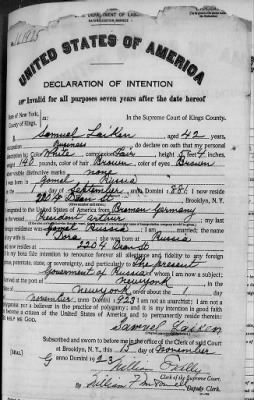 U. S. DEPARTMENT OF LABOR
NATURALIZATION SERVICE
No.
UNITED STATES OF AMERICA
DECLARATION OF INTENTION
Invalid for all purposes seven years after the date hereof
State of New York,
County of Kings,
In the Supreme Court of Kings County.
Samuel Laiken aged 42 years,
occupation Business do declare on oath that my personal
description is: Color White complexion Fair height 5 feet 4 inches,
weight 140 pounds, color of hair Brown color of eyes Brown
other visible distinctive marks none
born in Gomel Russia
day of September anno Domini 1881 I now reside
at 2204 Dean St Brooklyn, N. Y.
emigrated to the United States of America from Bremen Germany
my last
foreign residence was Gomel Russia I am married; the name
of my wife is Dora she was born at Russia
and now resides at 2204 Dean St
It is my bona fide intention to renounce forever all allegiance and fidelity to any foreign
prince, potentate, state, or sovereignty, and particularly to The present
Government of Russia of whom I am now a subject;
I arrived at the port of New York in the
State of New York on or about the 1 day
of November anno Domini 1923 I am not an anarchist; I am not a
polygamist nor a believer in the practice of polygamy; and it is my intention in good faith
to become a citizen of the United States of America and to permanently reside therein:
SO HELP ME GOD.
Samuel Laiken
Subscribed and sworn to before me in the office of the Clerk of said Court
at Brooklyn, N. Y., this 15 day of November
[SEAL] anno Domini 1923
William Kelly
Clerk of the Supreme Court.
By William
Deputy Clerk.